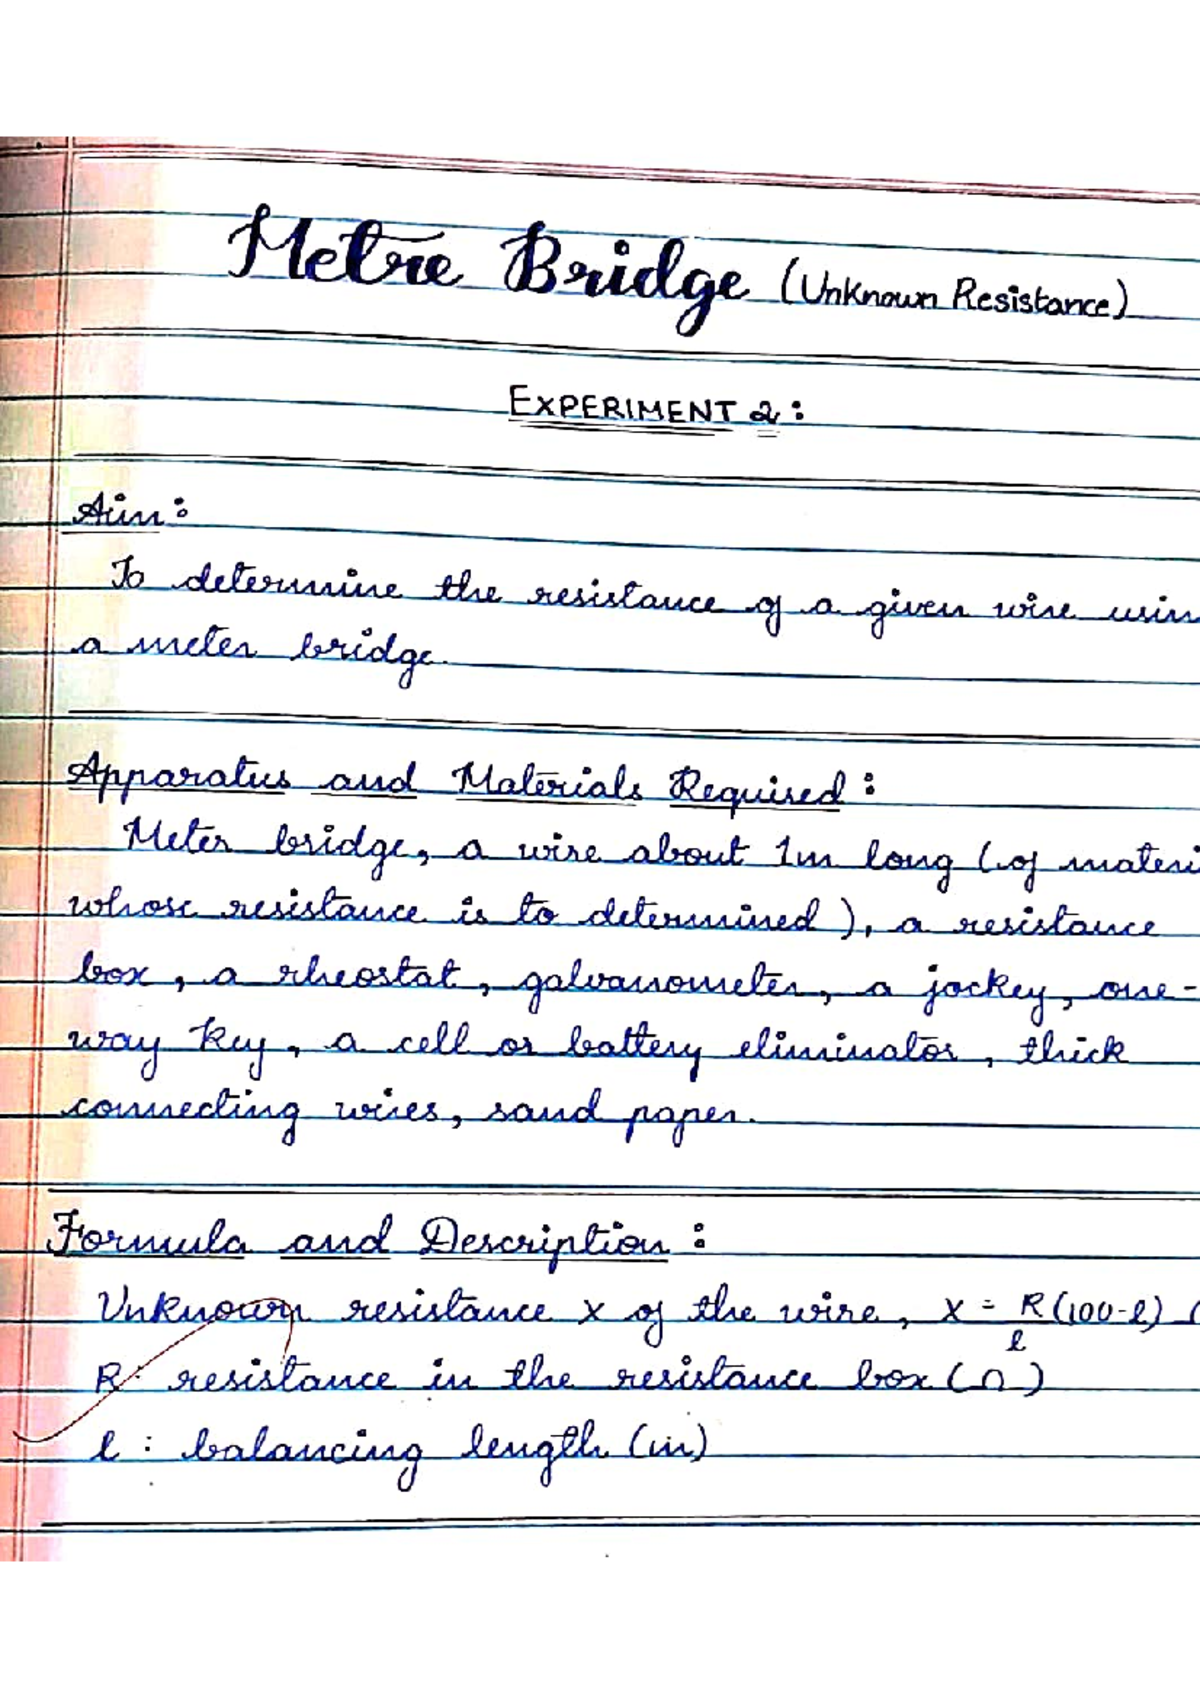 Metre Bridge (Unknown Resistance)
EXPERIMENT 2:
Aim:
To determine the resistance of a given wire usin
a meter bridge.
Apparatus and Materials Required:
Meter bridge, a wire about 1m long (of materi
whose resistance is to determined), a resistance
box, a rheostat, galvanometer, a jockey, one-
way key, a cell or battery eliminator, thick
connecting wires, sand paper.
Formula and Description:
Unknown resistance X of the wire, X = R(100-l)/l (
R: resistance in the resistance box (Ω)
l: balancing length (in)